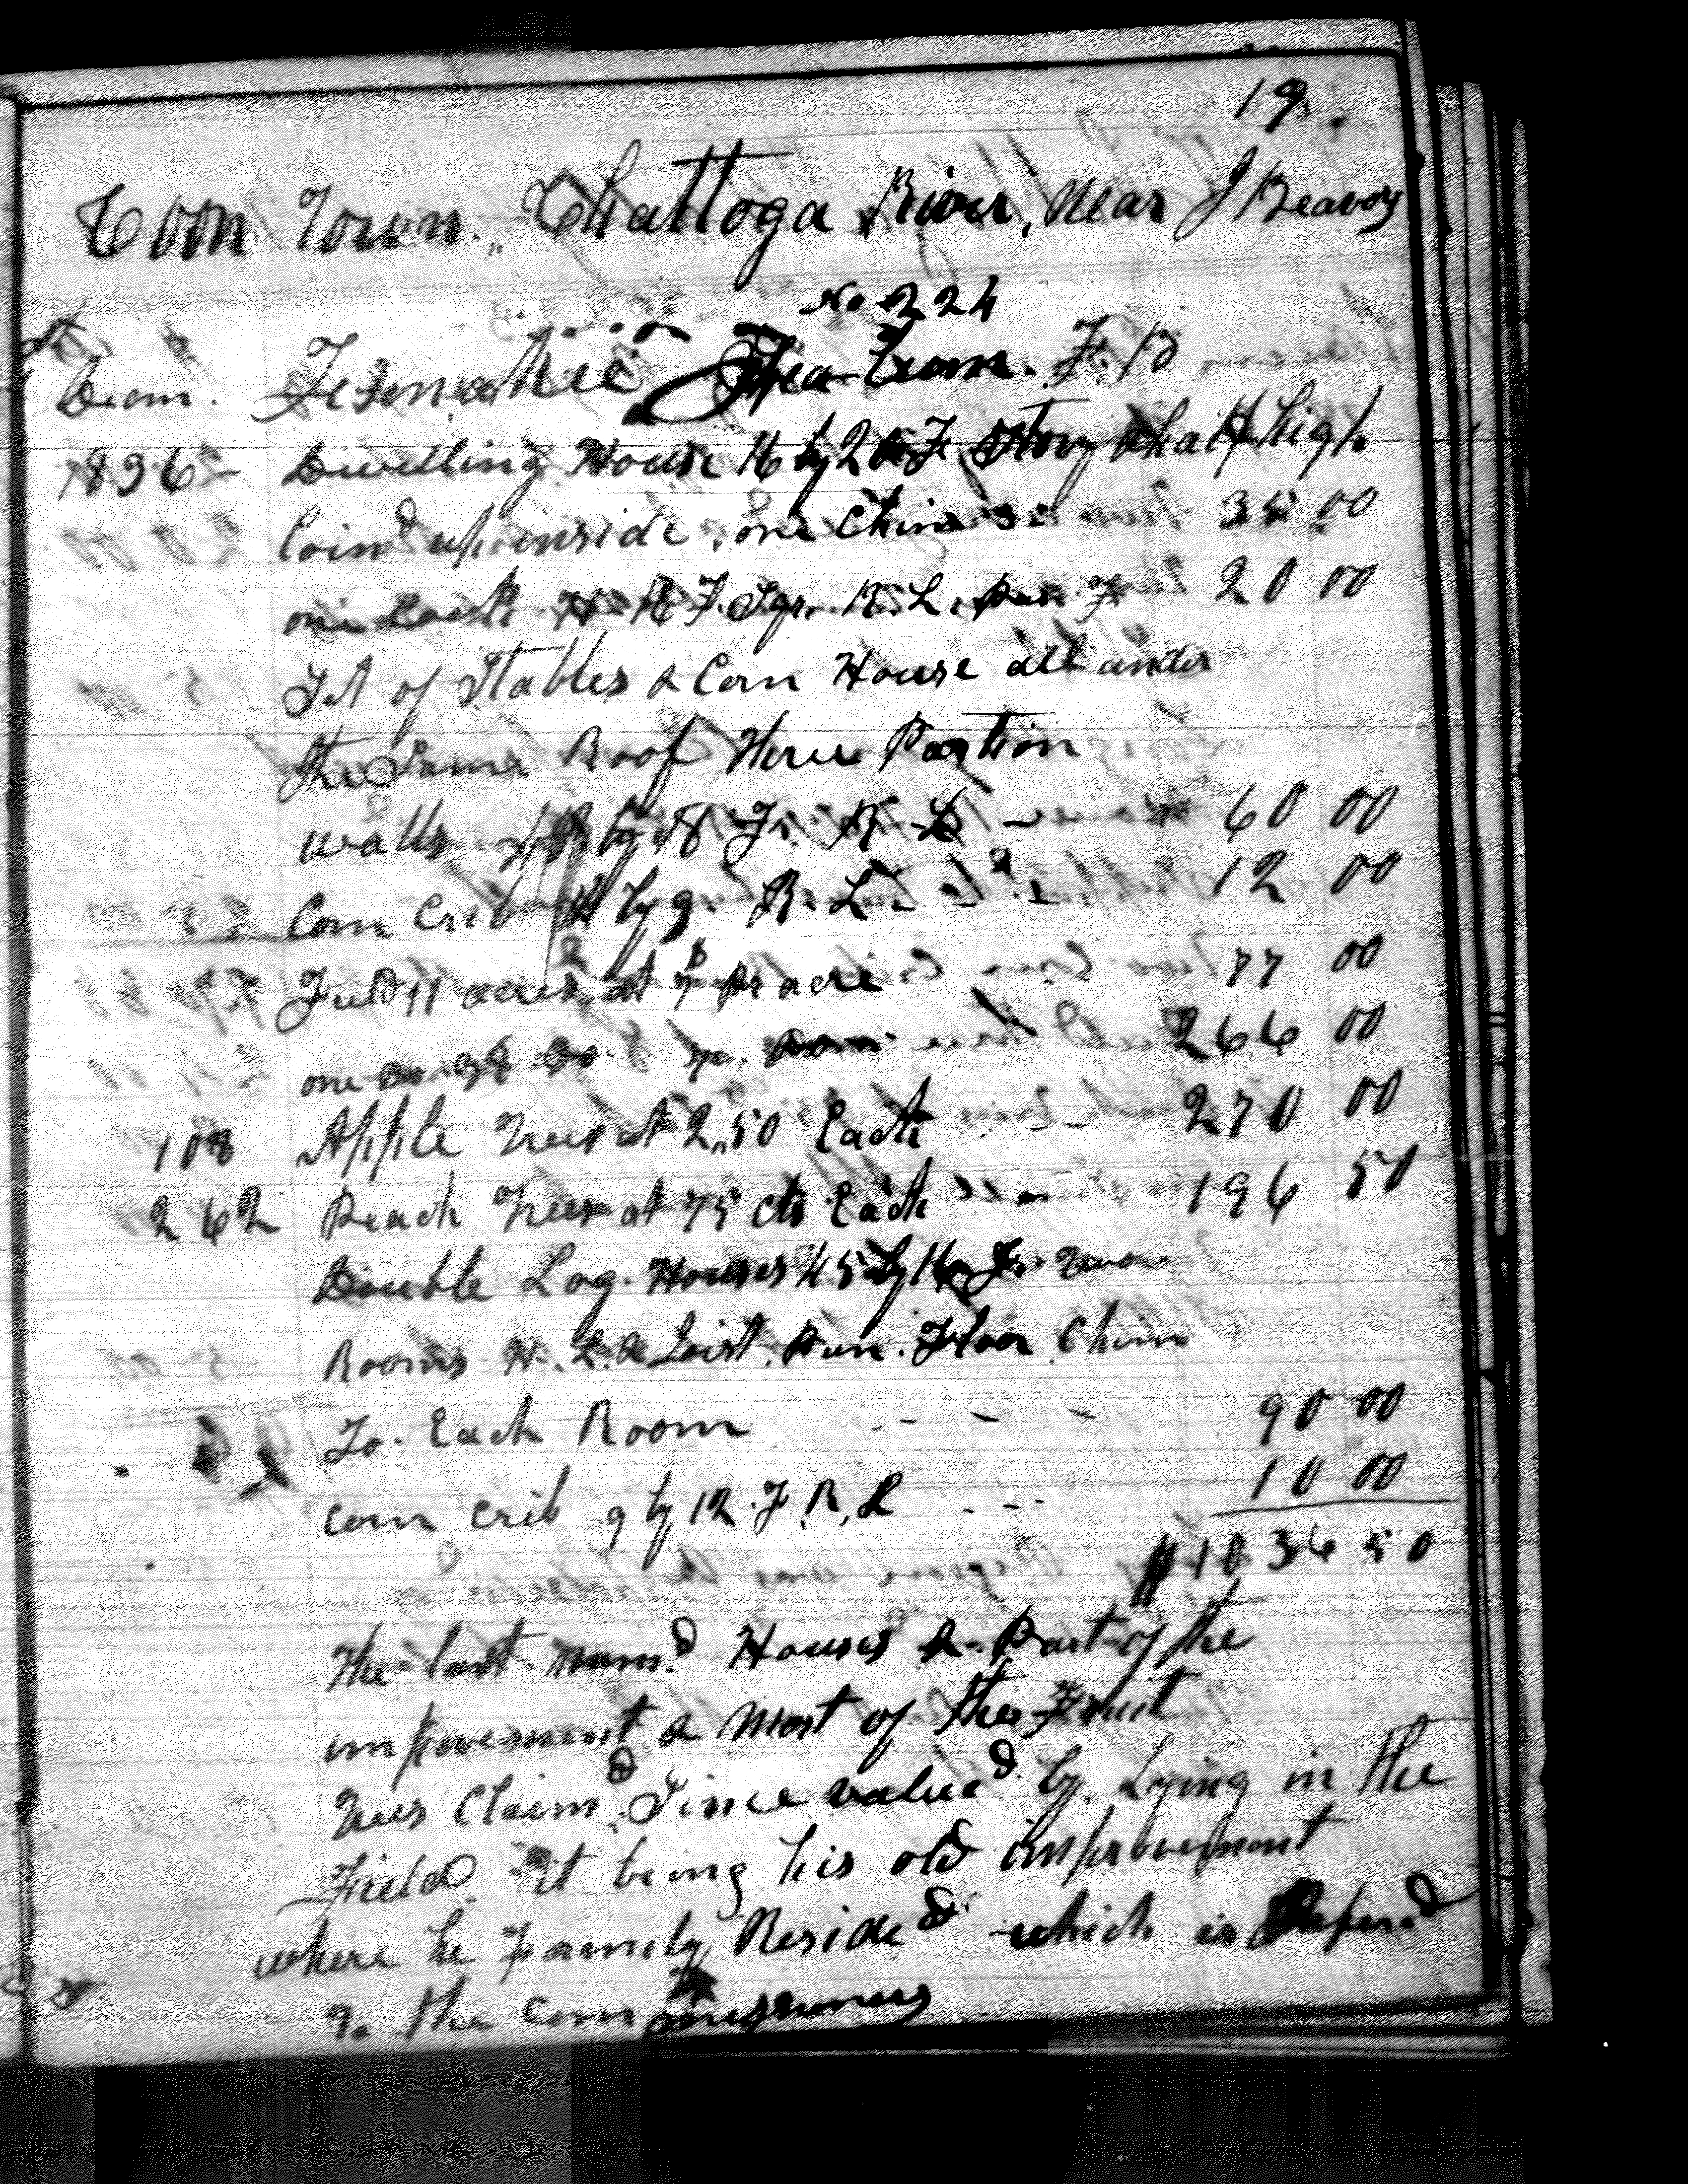 19.
Coon Town. Chattoga River, Near J Beavos
No 224
Decm. F. B
1836 - Dwelling House 16 by 20 F. Story & half high
Coind up inside, one Chim 35 00
one Cook H 16 F. Sqr. R. L. Pun. F. 20 00
Set of Stables & Corn House all under
the Same Roof three Partion
walls by 18 F. R. L - 60 00
Corn Crib 12 by 9. R. L - - 12 00
Field 11 acres at 7$ pr acre 77 00
one Do. 38 Do. 7. 266 00
108 Apple Trees at 2,,50 Each - - 270 00
262 Peach Trees at 75 cts Each - - 196 50
Double Log Houses 45 by 16 F. Two
Rooms H. L. & Joist. Pun. Floor Chim
To. Each Room - - - 90 00
Corn Crib 9 by 12. F. R, L - - - 10 00
$1036 50
The last namd Houses & Part of the
improvement & Most of the Fruit
Trees Claimd Since valued by Lying in the
Field it being his old improvement
where he Family Resided which is Referd
To the Commissioners